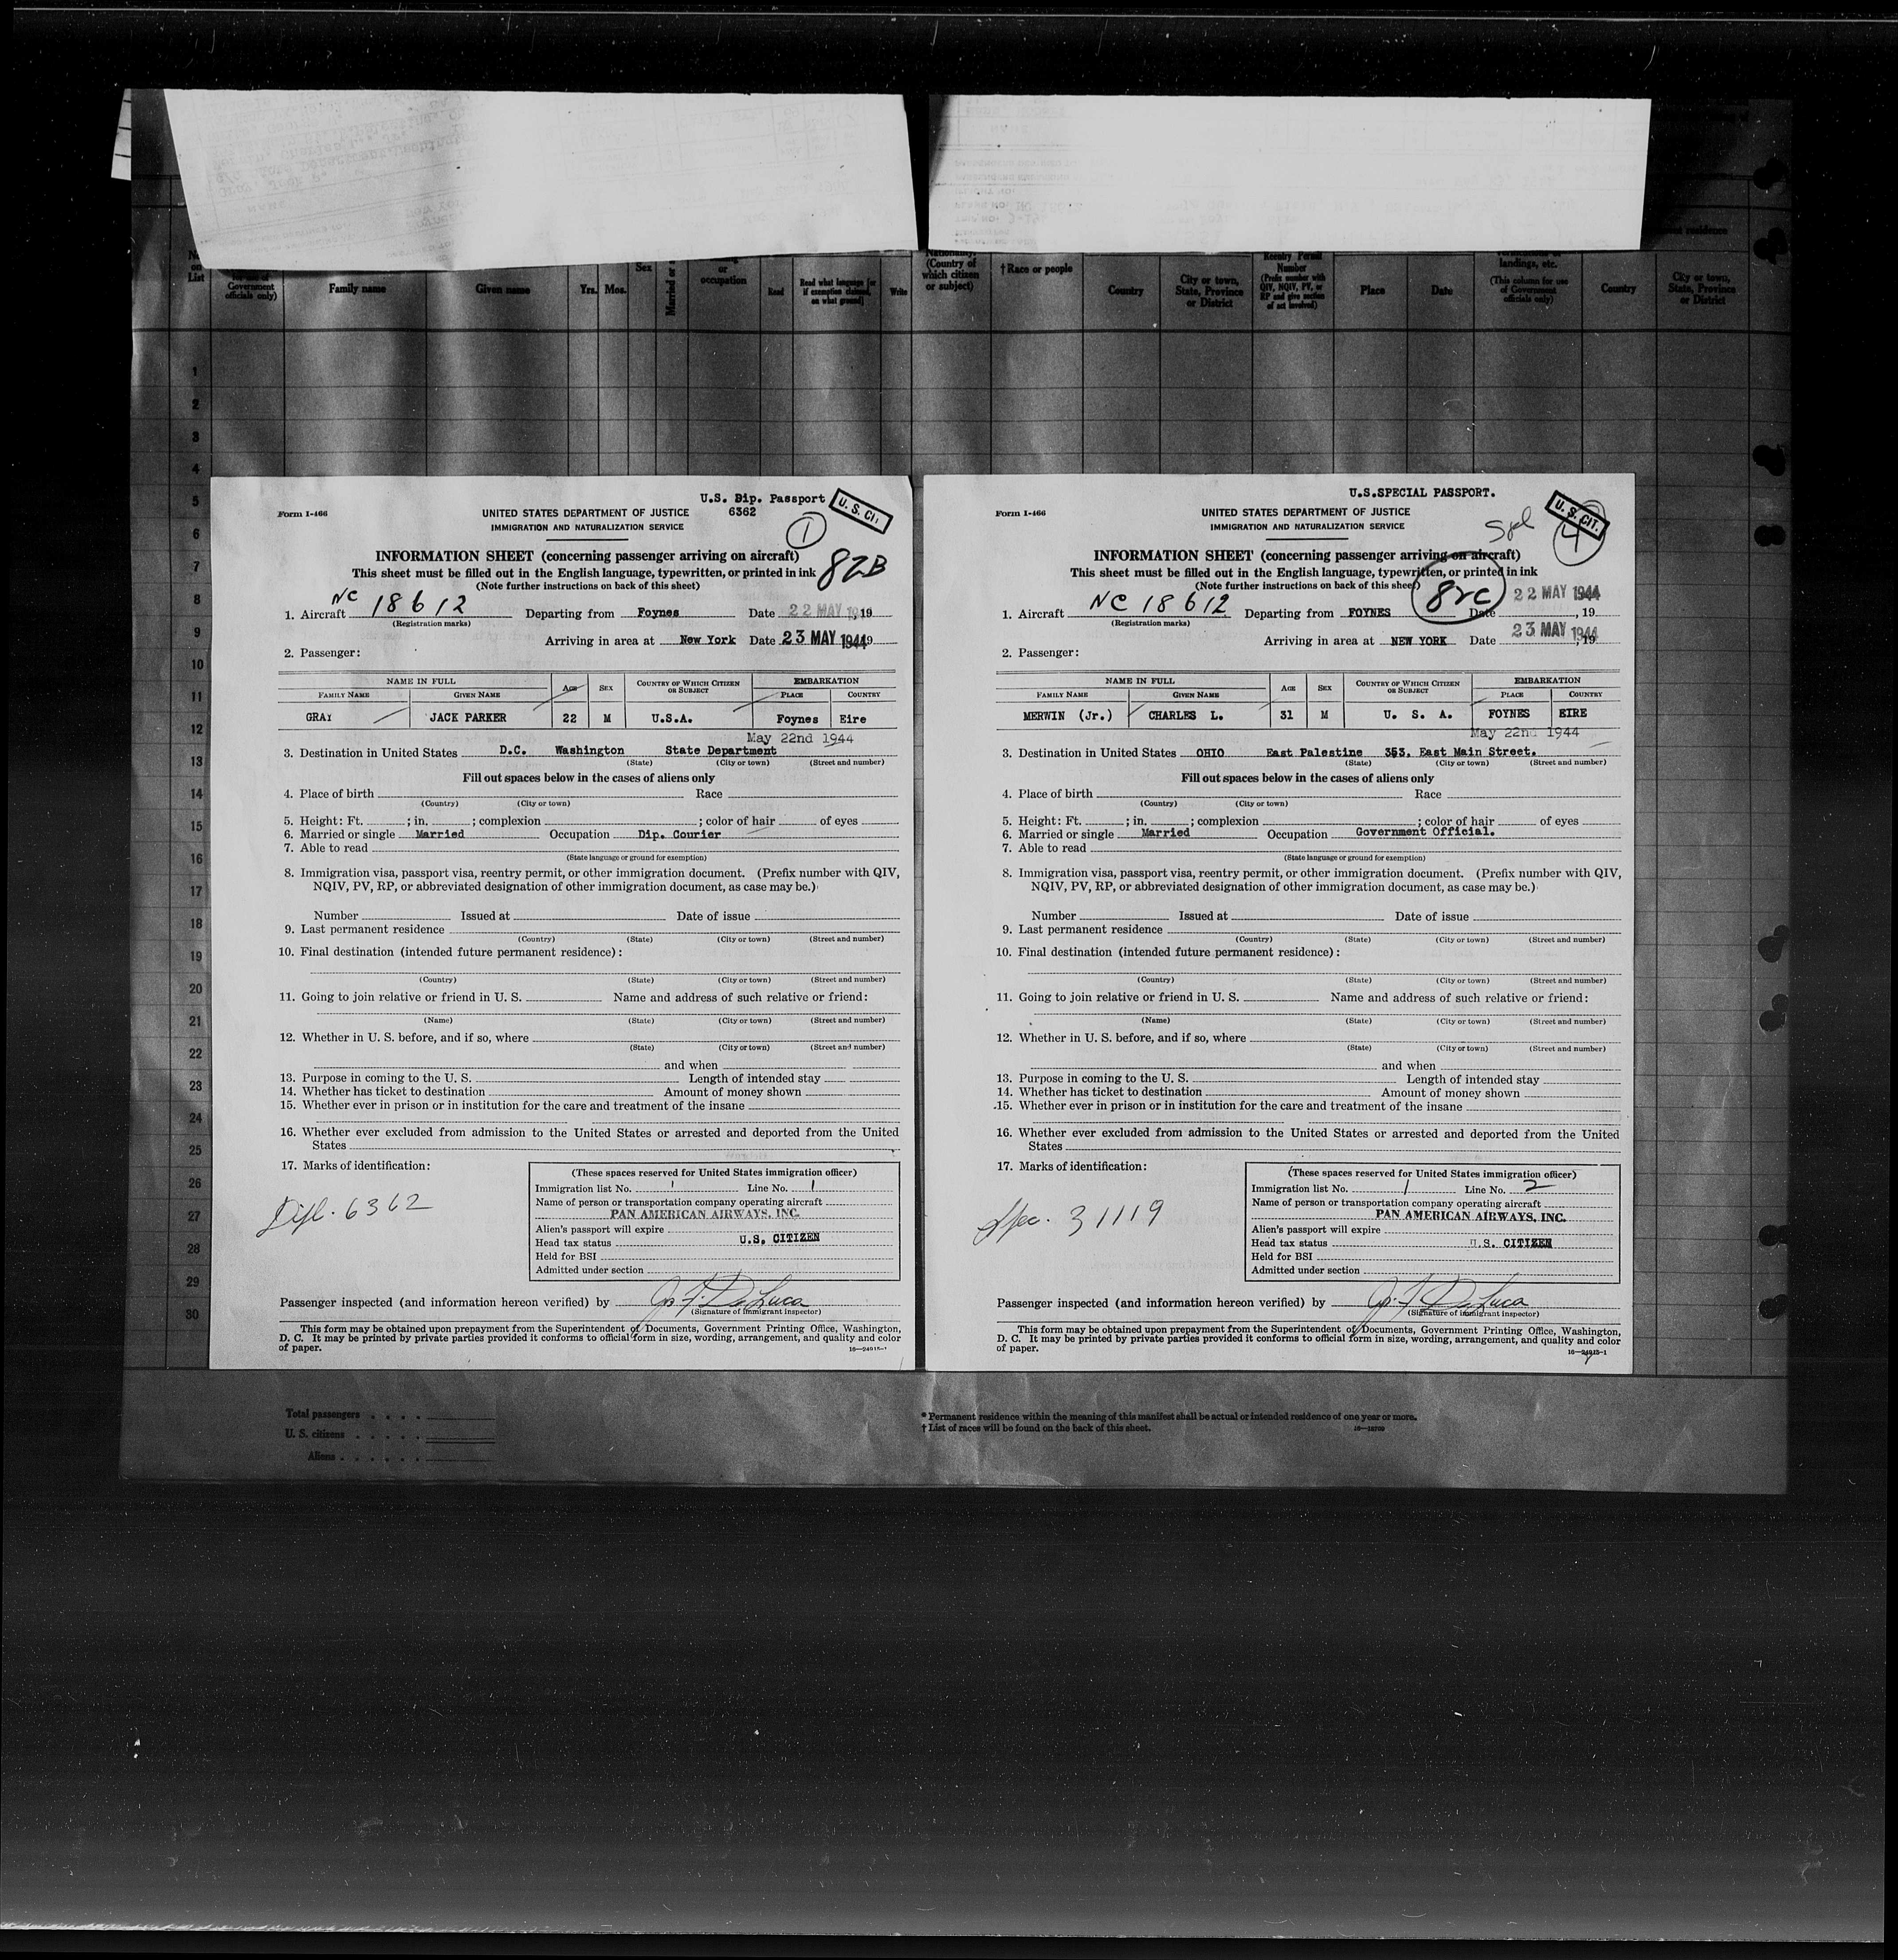 List
Government
officials only)
Family name
Given name
Yrs. Mos.
Sex
or
occupation
Read
Read what language [or
if exemption claimed,
on what ground]
Write
(Country of
which citizen
or subject)
† Race or people
Country
City or town,
State, Province
or District
Number
(Prefix number with
QIV, NQIV, PV, or
RP and give section
of act involved)
Place
Date
landings, etc.
(This column for use
of Government
officials only)
Country
City or town,
State, Province
or District
1
2
3
4
5
6
7
8
9
10
11
12
13
14
15
16
17
18
19
20
21
22
23
24
25
26
27
28
29
30
U.S. Dip. Passport
6362
U. S. CI
Form I-466
UNITED STATES DEPARTMENT OF JUSTICE
IMMIGRATION AND NATURALIZATION SERVICE
1
INFORMATION SHEET (concerning passenger arriving on aircraft)
82B
This sheet must be filled out in the English language, typewritten, or printed in ink
(Note further instructions on back of this sheet)
1. Aircraft NC 18612 Departing from Foynes Date 22 MAY 19
(Registration marks)
Arriving in area at New York Date 23 MAY 1944 9
2. Passenger:
NAME IN FULL
FAMILY NAME GIVEN NAME AGE SEX COUNTRY OF WHICH CITIZEN OR SUBJECT EMBARKATION PLACE COUNTRY
GRAY JACK PARKER 22 M U.S.A. Foynes Eire
May 22nd 1944
3. Destination in United States D.C. Washington State Department
(State) (City or town) (Street and number)
Fill out spaces below in the cases of aliens only
4. Place of birth Race
(Country) (City or town)
5. Height: Ft. ; in. ; complexion ; color of hair of eyes
6. Married or single Married Occupation Dip. Courier
7. Able to read
(State language or ground for exemption)
8. Immigration visa, passport visa, reentry permit, or other immigration document. (Prefix number with QIV,
NQIV, PV, RP, or abbreviated designation of other immigration document, as case may be.)
Number Issued at Date of issue
9. Last permanent residence
(Country) (State) (City or town) (Street and number)
10. Final destination (intended future permanent residence):
(Country) (State) (City or town) (Street and number)
11. Going to join relative or friend in U. S. Name and address of such relative or friend:
(Name) (State) (City or town) (Street and number)
12. Whether in U. S. before, and if so, where
(State) (City or town) (Street and number)
and when
13. Purpose in coming to the U. S. Length of intended stay
14. Whether has ticket to destination Amount of money shown
15. Whether ever in prison or in institution for the care and treatment of the insane
16. Whether ever excluded from admission to the United States or arrested and deported from the United
States
17. Marks of identification:
Dipl. 6362
(These spaces reserved for United States immigration officer)
Immigration list No. 1 Line No. 1
Name of person or transportation company operating aircraft
PAN AMERICAN AIRWAYS, INC.
Alien's passport will expire
Head tax status U.S. CITIZEN
Held for BSI
Admitted under section
Passenger inspected (and information hereon verified) by Jos. F. DeLuca
(Signature of immigrant inspector)
This form may be obtained upon prepayment from the Superintendent of Documents, Government Printing Office, Washington,
D. C. It may be printed by private parties provided it conforms to official form in size, wording, arrangement, and quality and color
of paper.
16—24915-1
U.S.SPECIAL PASSPORT.
U. S. CIT.
Form I-466
UNITED STATES DEPARTMENT OF JUSTICE
IMMIGRATION AND NATURALIZATION SERVICE
Spl
4
INFORMATION SHEET (concerning passenger arriving on aircraft)
This sheet must be filled out in the English language, typewritten, or printed in ink
(Note further instructions on back of this sheet)
82C
1. Aircraft NC 18612 Departing from FOYNES Date 22 MAY 1944, 19
(Registration marks)
Arriving in area at NEW YORK Date 23 MAY 1944, 19
2. Passenger:
NAME IN FULL
FAMILY NAME GIVEN NAME AGE SEX COUNTRY OF WHICH CITIZEN OR SUBJECT EMBARKATION PLACE COUNTRY
MERWIN (Jr.) CHARLES L. 31 M U. S. A. FOYNES EIRE
May 22nd 1944
3. Destination in United States OHIO East Palestine 353, East Main Street.
(State) (City or town) (Street and number)
Fill out spaces below in the cases of aliens only
4. Place of birth Race
(Country) (City or town)
5. Height: Ft. ; in. ; complexion ; color of hair of eyes
6. Married or single Married Occupation Government Official.
7. Able to read
(State language or ground for exemption)
8. Immigration visa, passport visa, reentry permit, or other immigration document. (Prefix number with QIV,
NQIV, PV, RP, or abbreviated designation of other immigration document, as case may be.)
Number Issued at Date of issue
9. Last permanent residence
(Country) (State) (City or town) (Street and number)
10. Final destination (intended future permanent residence):
(Country) (State) (City or town) (Street and number)
11. Going to join relative or friend in U. S. Name and address of such relative or friend:
(Name) (State) (City or town) (Street and number)
12. Whether in U. S. before, and if so, where
(State) (City or town) (Street and number)
and when
13. Purpose in coming to the U. S. Length of intended stay
14. Whether has ticket to destination Amount of money shown
15. Whether ever in prison or in institution for the care and treatment of the insane
16. Whether ever excluded from admission to the United States or arrested and deported from the United
States
17. Marks of identification:
Spec. 31119
(These spaces reserved for United States immigration officer)
Immigration list No. 1 Line No. 2
Name of person or transportation company operating aircraft
PAN AMERICAN AIRWAYS, INC.
Alien's passport will expire
Head tax status U.S. CITIZEN
Held for BSI
Admitted under section
Passenger inspected (and information hereon verified) by Jos. F. DeLuca
(Signature of immigrant inspector)
This form may be obtained upon prepayment from the Superintendent of Documents, Government Printing Office, Washington,
D. C. It may be printed by private parties provided it conforms to official form in size, wording, arrangement, and quality and color
of paper.
16—24915-1
Total passengers
U. S. citizens
Aliens
* Permanent residence within the meaning of this manifest shall be actual or intended residence of one year or more.
† List of races will be found on the back of this sheet.